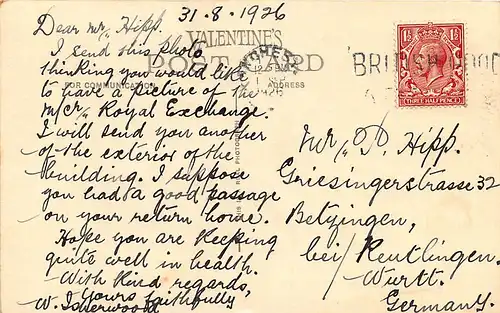 31.8.1926
Dear Mr. Hipp.
I send this photo
thinking you would like
to have a picture of the
M/cr. Royal Exchange.
I will send you another
of the exterior of the
building. I suppose
you had a good passage
on your return home.
Hope you are keeping
quite well in health.
With kind regards,
Yours faithfully
W. Isherwood
VALENTINE'S
POST CARD
FOR COMMUNICATION
ADDRESS
12.15 AM
1926
BRITISH
1½ 1½
THREE HALF PENCE
Mr. P. Hipp.
Griesingerstrasse 32
Betzingen,
bei/Reutlingen.
Wurtt.
Germany.